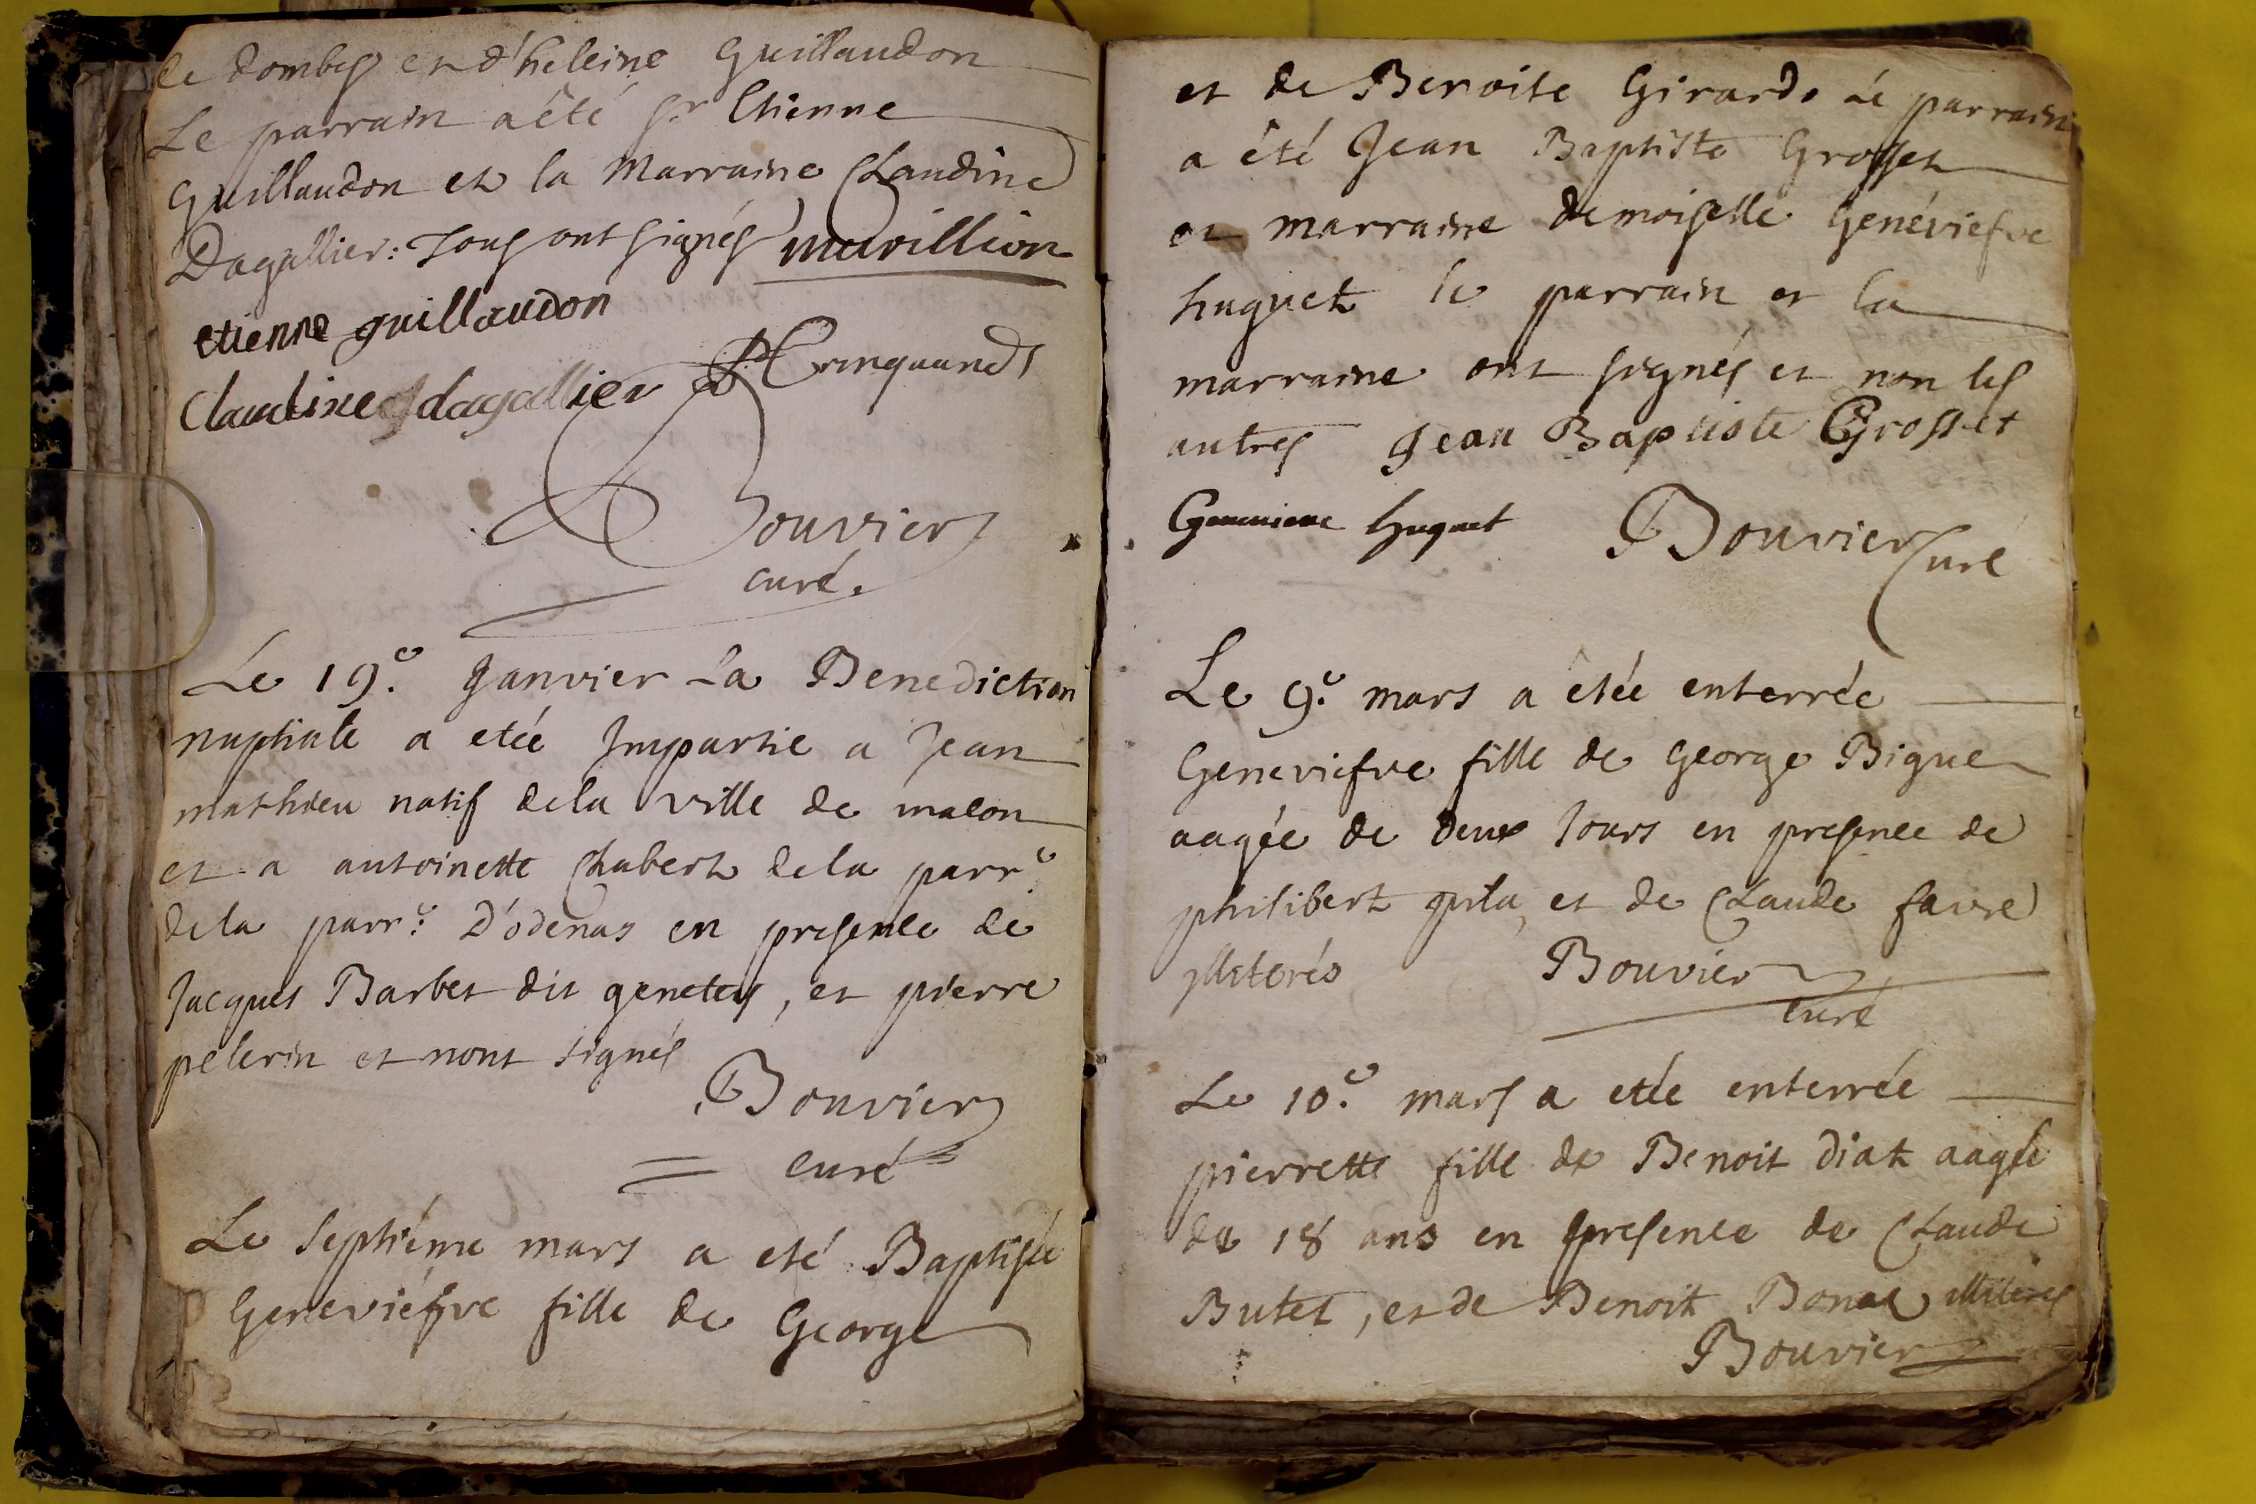 de dombes et d'heleine Guillaudon
Le parrain a été sr Etienne
Guillaudon et la Marraine Claudine
Dagallier: Tous ont signés mavillion
etienne guillaudon
Claudine dagallier Crinquand
Bouvier
curé.
Le 19.e Janvier La Benediction
nuptiale a etée Impartie a Jean
mathieu natif dela ville de macon
et a antoinette Chabert dela parr.e
dela parr.e D'odenas en presence de
Jacques Barbet dit genetey, et pierre
pelerin et nont signés
Bouvier
curé
Le Septiéme mars a eté Baptisée
Geneviéfve fille de George
et de Benoite Girard. Le parrain
a été Jean Baptiste Grosset
et marraine demoiselle Genéviefve
huguet le parrain et la
marraine ont signés et non les
autres Jean Baptiste Grosset
Genevieve huguet Bouvier Curé
Le 9.e mars a étée enterrée
Geneviefve fille de George Bigue
aagée de deux Jours en presence de
philibert et de Claude favre
illiterés Bouvier
curé
Le 10.e mars a etée enterrée
pierrette fille de Benoit diat aagée
de 18 ans en presence de Claude
Butet, et de Benoit illiterés
Bouvier